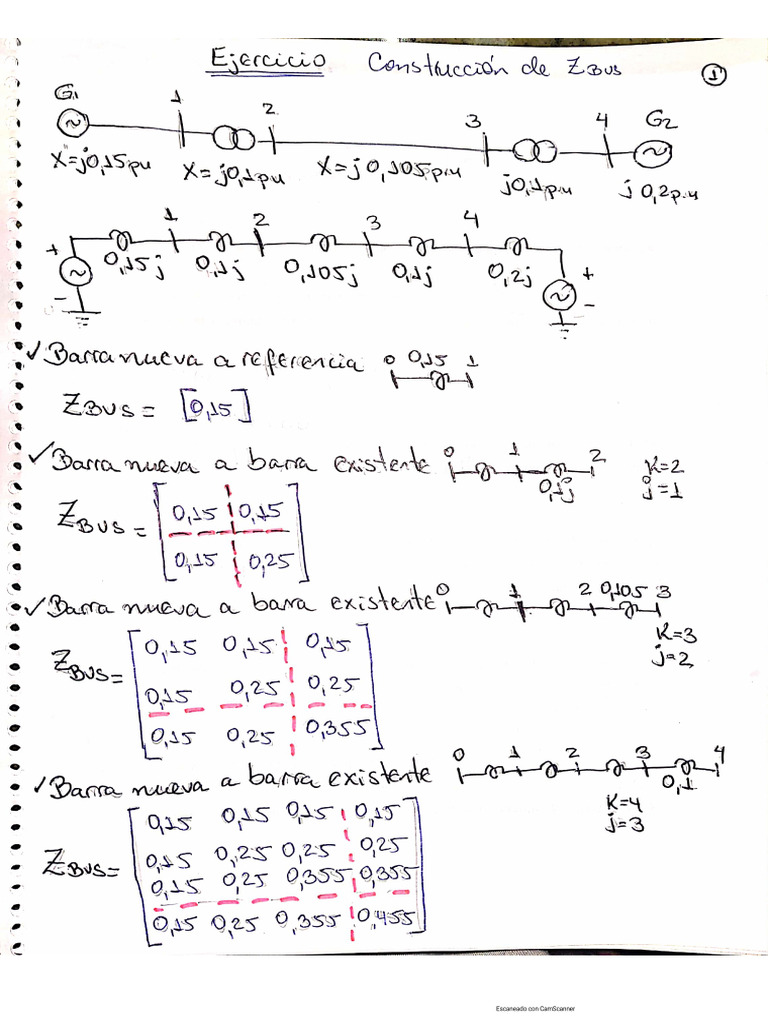 Ejercicio Construcción de ZBUS 1
G1 1 2 3 4 G2
X"=j0,15pu X=j0,1pu X=j0,105p.u j0,1p.u j0,2p.u
1 2 3 4
+ 0,15j 0,1j 0,105j 0,1j 0,2j +
- -
✓ Barra nueva a referencia 0 0,15 1
ZBUS= [0,15]
✓ Barra nueva a barra existente 0 1 2 K=2
0,1j j=1
ZBUS= 0,15 0,15
0,15 0,25
✓ Barra nueva a barra existente 0 1 2 0,105 3
K=3
j=2
ZBUS= 0,15 0,15 0,15
0,15 0,25 0,25
0,15 0,25 0,355
✓ Barra nueva a barra existente 0 1 2 3 4
0,1
K=4
j=3
ZBUS= 0,15 0,15 0,15 0,15
0,15 0,25 0,25 0,25
0,15 0,25 0,355 0,355
0,15 0,25 0,355 0,455
Escaneado con CamScanner